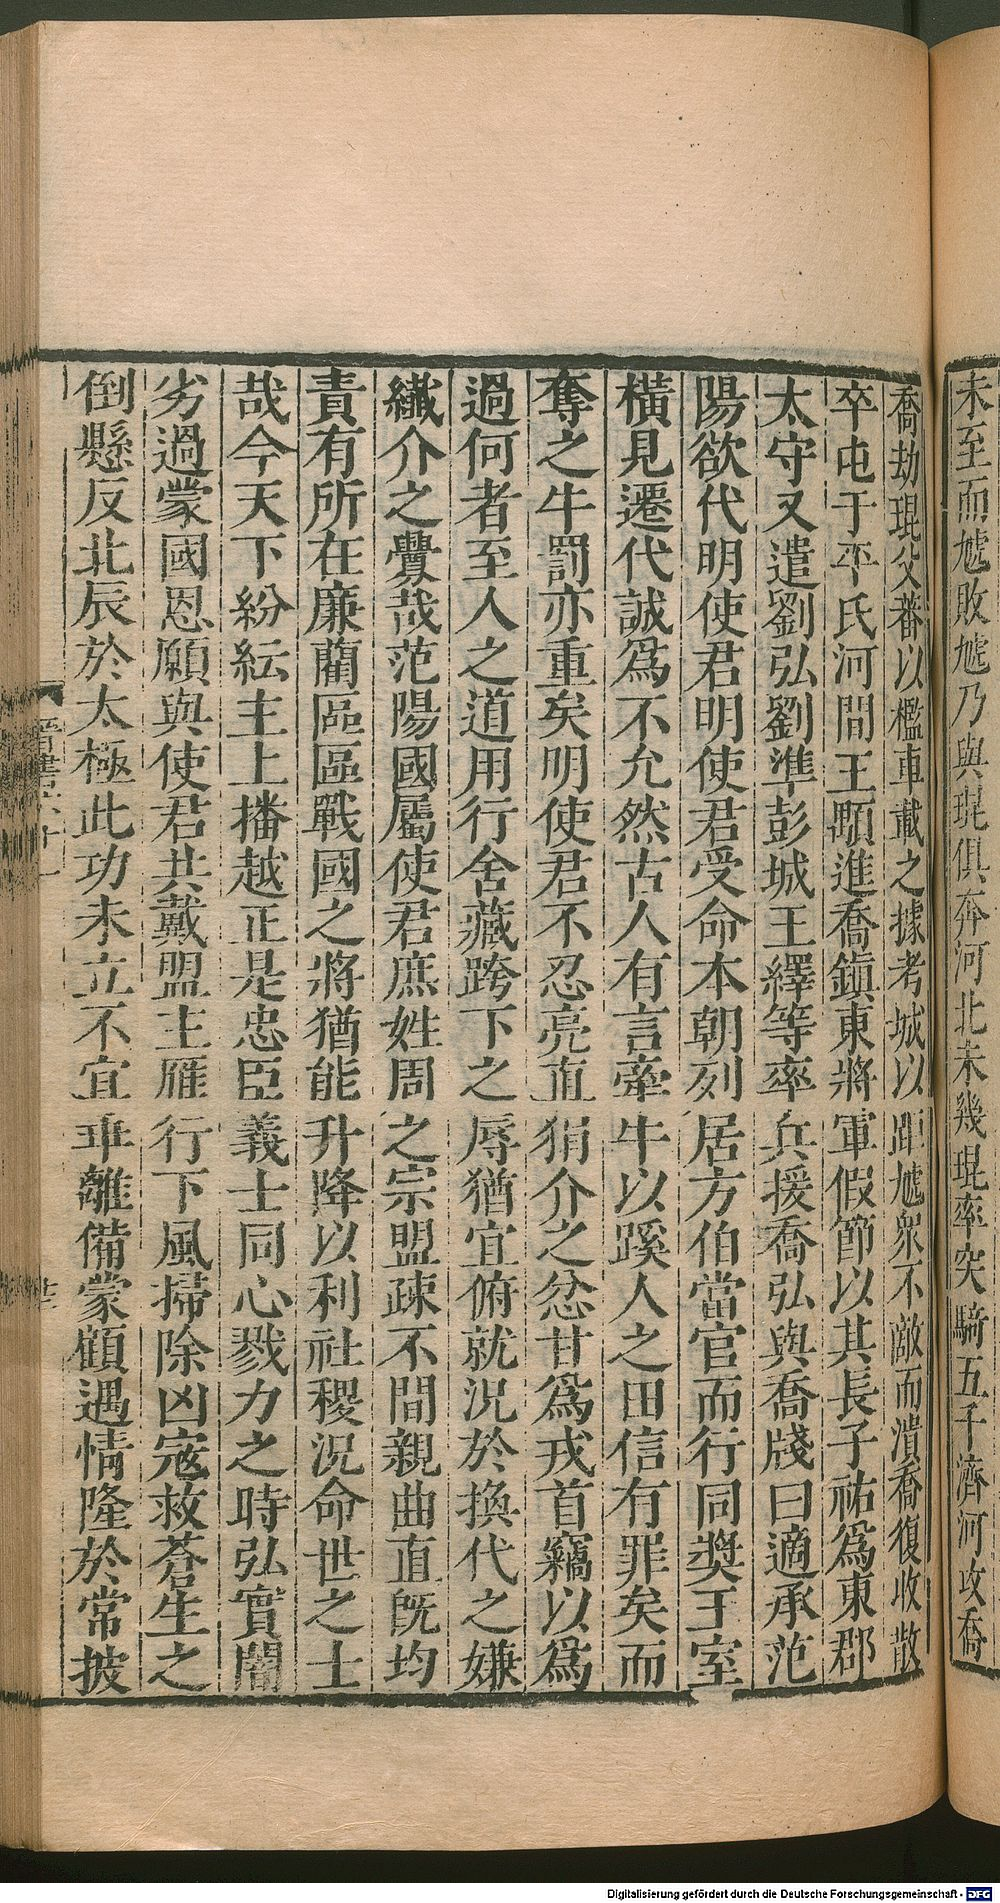 未至而虓敗虓乃與琨俱奔河北未幾琨率突騎五千濟河攻喬
喬劫琨父蕃以檻車載之據考城以距虓衆不敵而潰喬復收散
卒屯于平氏河間王顒進喬鎮東將軍假節以其長子祐爲東郡
太守又遣劉弘劉準彭城王繹等率兵援喬弘與喬牋曰適承范
陽欲代明使君明使君受命本朝列居方伯當官而行同奬王室
橫見遷代誠爲不允然古人有言牽牛以蹊人之田信有罪矣而
奪之牛罰亦重矣明使君不忍亮直狷介之忿甘爲戎首竊以爲
過何者至人之道用行舍藏跨下之辱猶宜俯就況於換代之嫌
纖介之釁哉范陽國屬使君庶姓周之宗盟疎不間親曲直既均
責有所在廉藺區區戰國之將猶能升降以利社稷況命世之士
哉今天下紛紜主上播越正是忠臣義士同心戮力之時弘實闇
劣過蒙國恩願與使君共戴盟主雁行下風掃除凶寇救蒼生之
倒懸反北辰於太極此功未立不宜乖離備蒙顧遇情隆於常披
晉書六十一
Digitalisierung gefördert durch die Deutsche Forschungsgemeinschaft - DFG